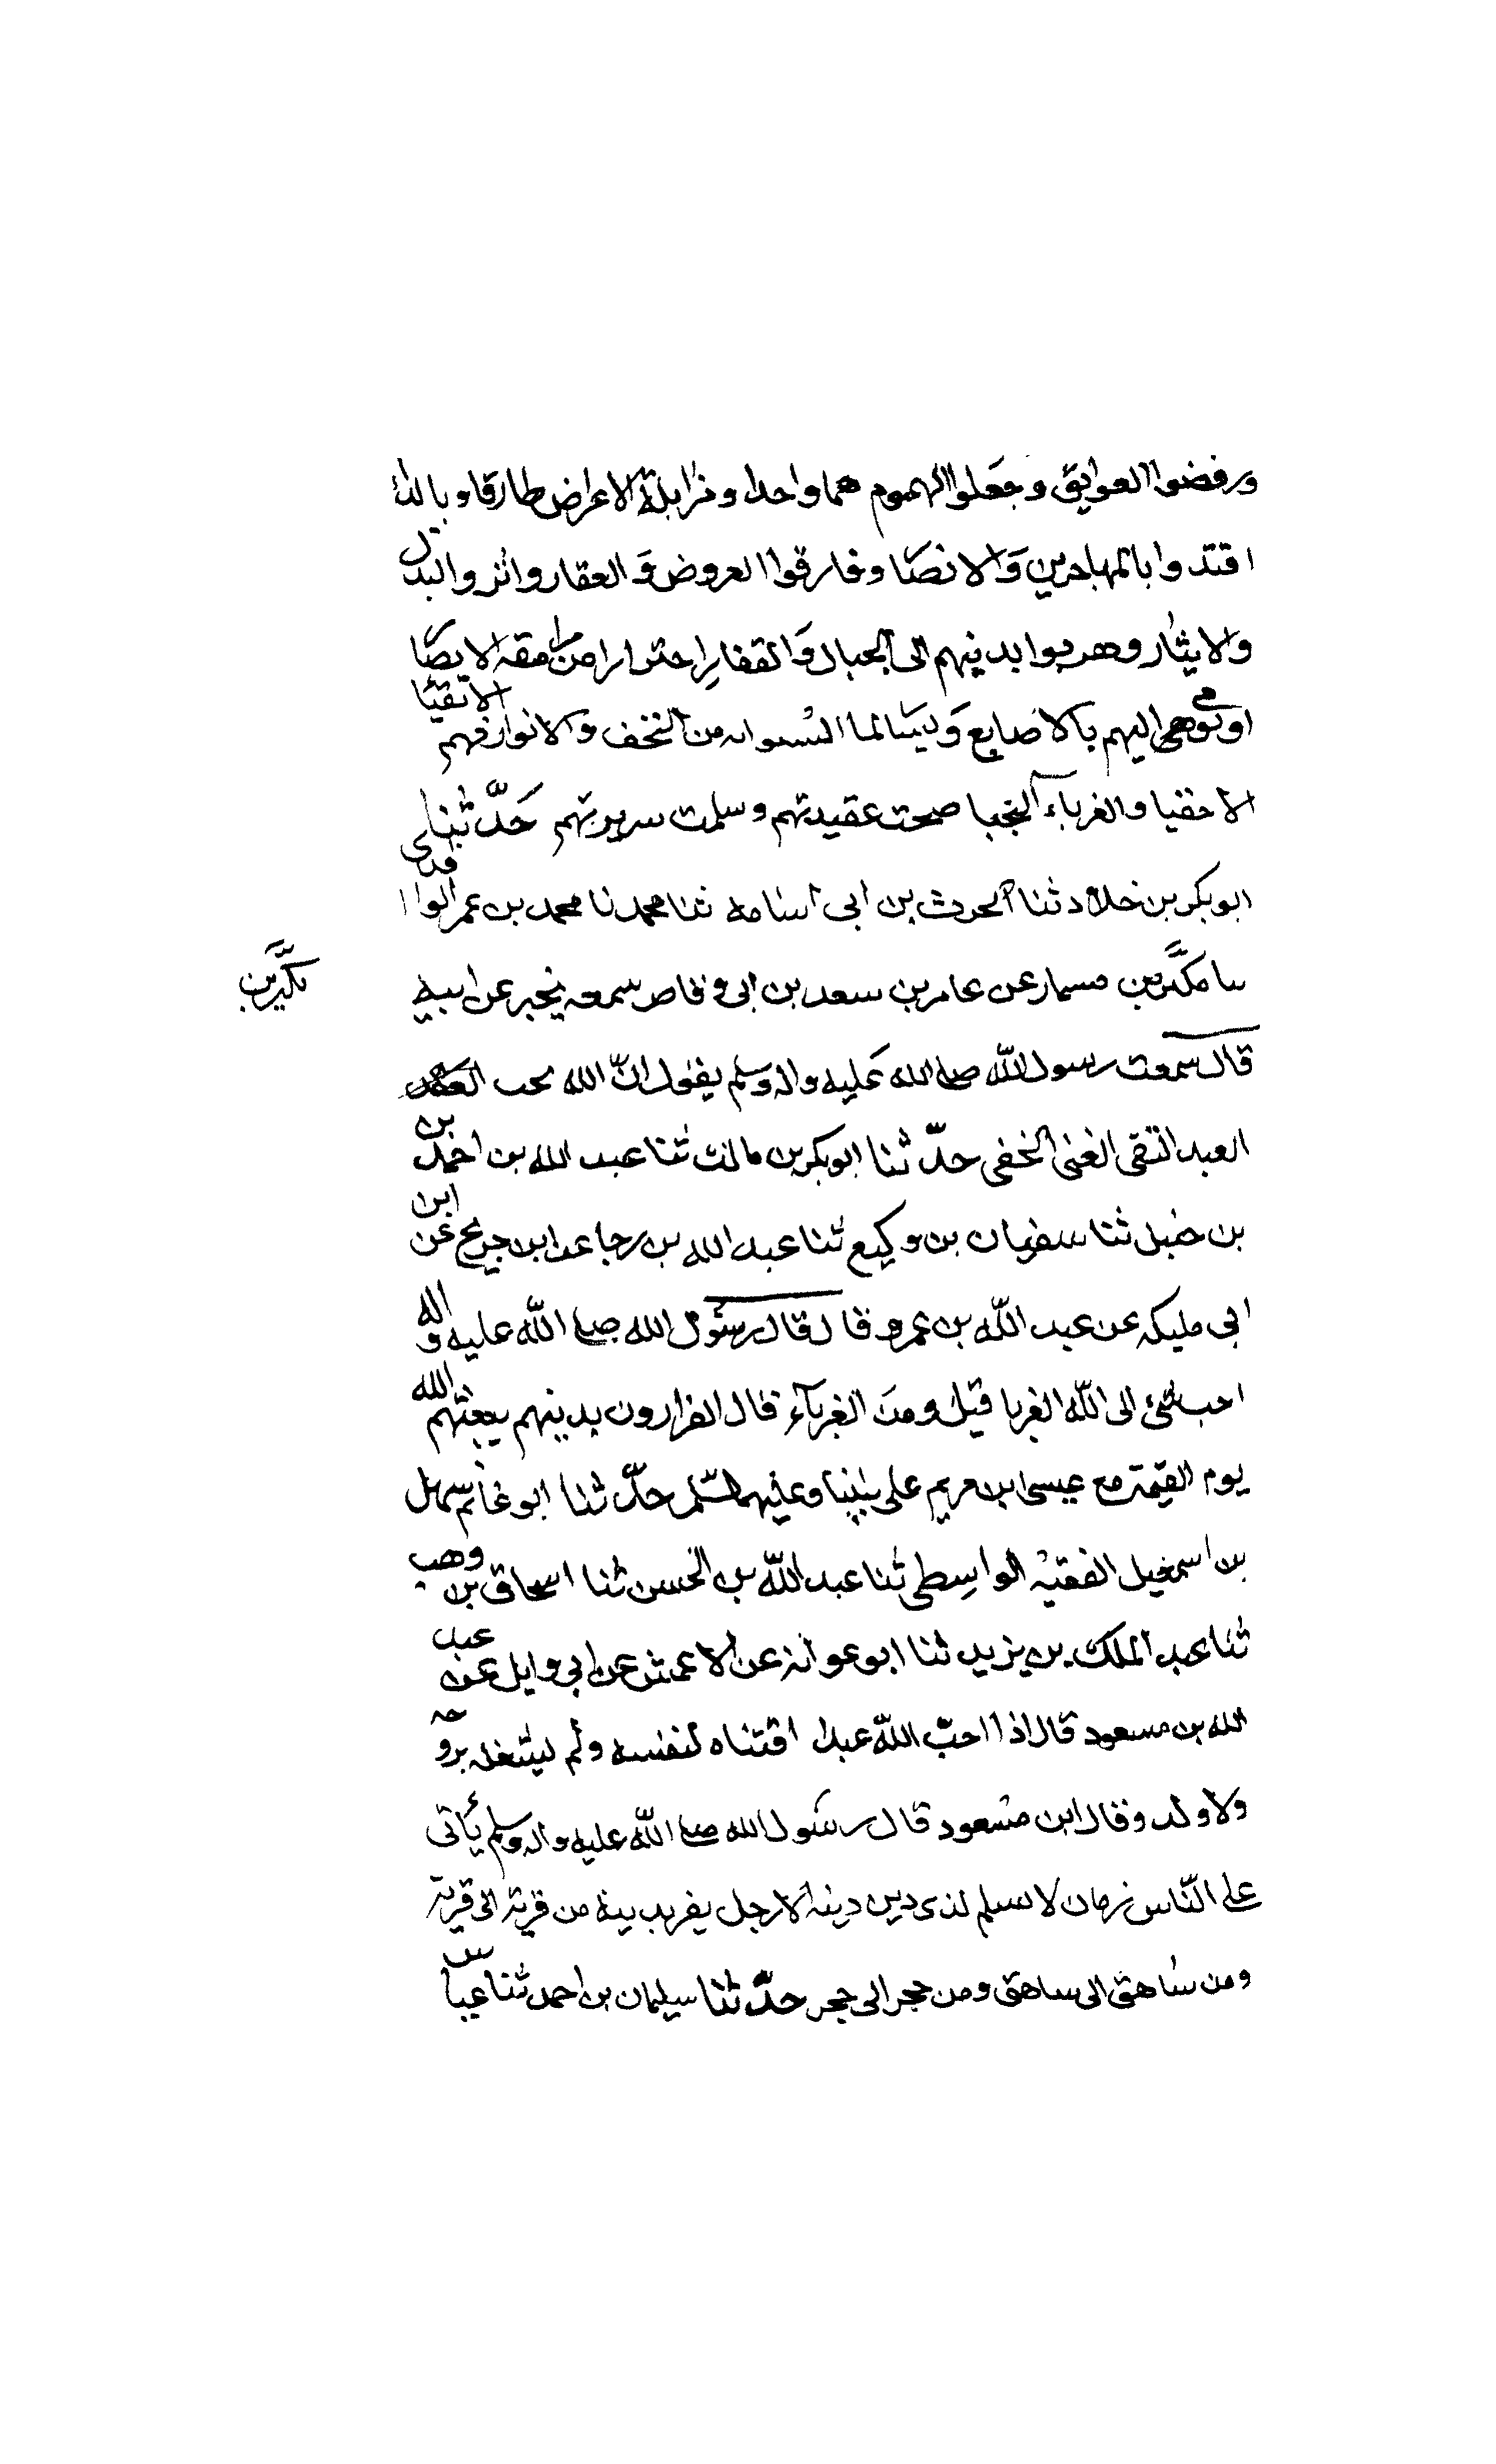 ورفضوا العوايق وجعلوا الهموم هما واحدا ومزايلة الاعراض طارقا وبالله
اقتدوا بالمهاجرين والانصا وفارقوا العروض و العقار واثروا البذل
والايثار وهربوا بدينهم الى الجبال و القفار احترازا من رامقه الابصا
اويومى اليهم بالاصابع و يشا لما انسوا به من التحف و الانوار فهم الاتقيا
الاخفيا والغرباء النجبا صحت عقيدتهم وسلمت سريرتهم حدثنا
ابوبكر بن خلاد ثنا الحرث بن ابى اسامه ثنا محمد نا محمد بن عمر الواقدى
سا مكير بن مسمار عن عامر بن سعد بن ابى وقاص سمعه يخبر عن ابيه
بكير بن
قال سمعت رسول الله صلى الله عليه واله وسلم يقول ان الله يحب
العبد التقى الغنى الخفى حدثنا ابوبكر بن مالك ثنا عبد الله بن احمد بن
بن حنبل ثنا سفيان بن وكيع ثنا عبد الله بن رجا عن ابن جريج عن ابن
ابى مليكه عن عبد الله بن عمرو قال قال رسول الله صلى الله عليه و اله
احب شئ الى الله الغربا قيل ومن الغرباء قال الفرارون بدينهم يبعثهم الله
يوم القيمة مع عيسى ابن مريم على نبينا وعليهما السلم حدثنا ابو غانم سهل
بن اسمعيل الفقيه الواسطى ثنا عبد الله بن الحسن ثنا اسحاق بن وهب
ثنا عبد الملك بن يزيد ثنا ابو عوانه عن الاعمش عن ابى وايل عن عبد
الله بن مسعود قال اذا احب الله عبدا اقتناه لنفسه ولم يشغله بزوجه
ولا ولد وقال ابن مسعود قال رسول الله صلى الله عليه واله وسلم يأتى
على الناس زمان لا يسلم لذى دين دينه الا رجل يفر بدينه من قرية الى قرية
ومن شاهق الى ساهق ومن جحر الى جحر حدثنا سليمان بن احمد ثنا عباس